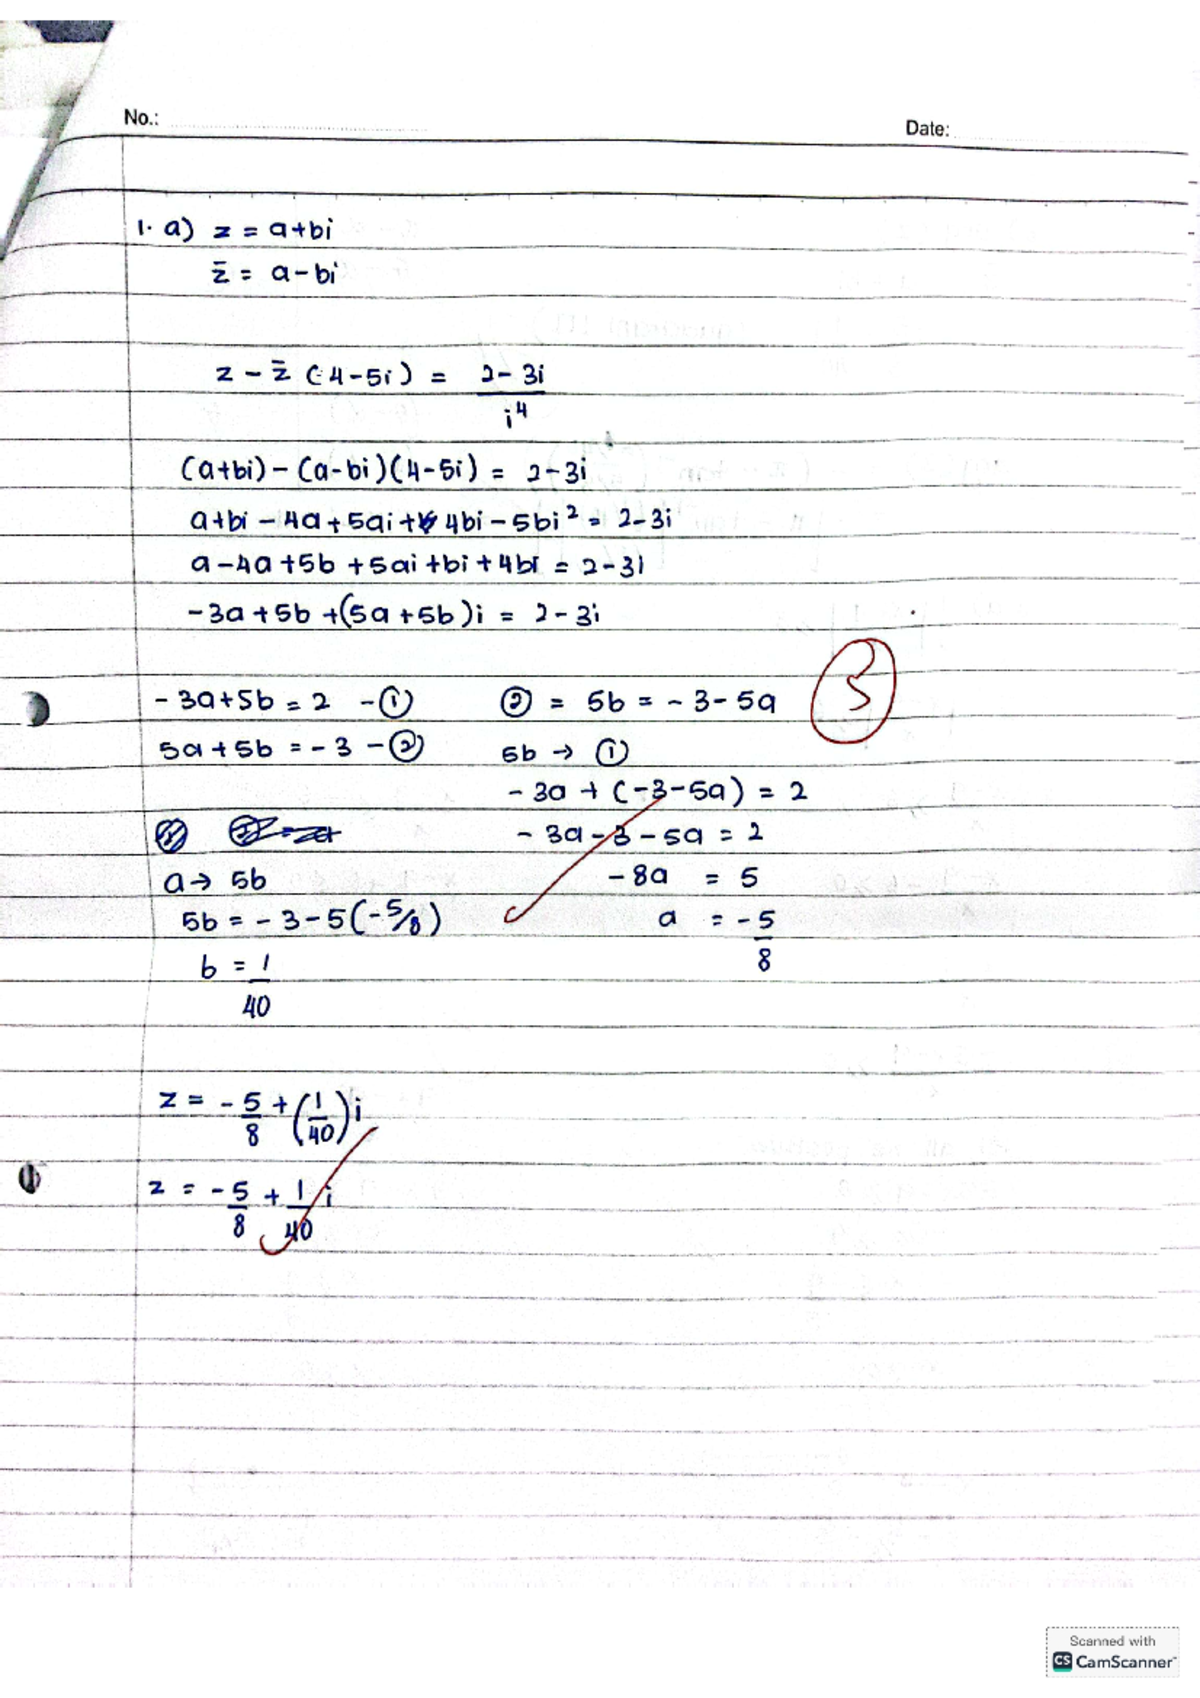 No.:
Date:
1. a) z = a+bi
z̄ = a-bi
z - z̄ (4-5i) = 2-3i
i⁴
(a+bi) - (a-bi)(4-5i) = 2-3i
a+bi - 4a + 5ai + 4bi - 5bi² = 2-3i
a-4a+5b +5ai +bi +4bi = 2-3i
-3a+5b +(5a+5b)i = 2-3i
3
-3a+5b = 2 -①
② = 5b = -3-5a
5a+5b = -3 -②
5b → ①
-3a + (-3-5a) = 2
-3a-3-5a = 2
a → 5b
-8a = 5
5b = -3-5(-5/8)
a = -5
8
b = 1
40
z = -5 + (1/40)i
8
z = -5 + 1 i
8 40
Scanned with
CS CamScanner